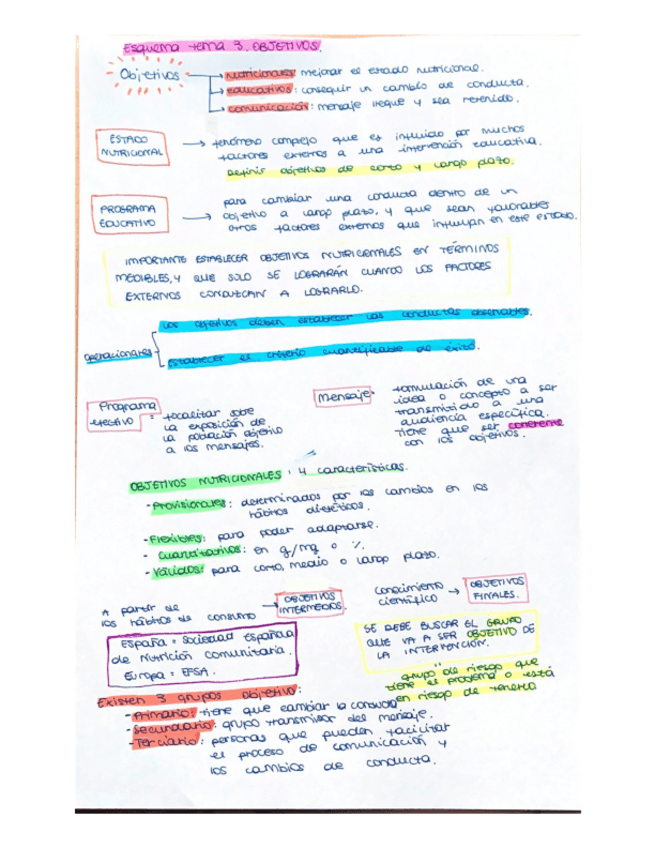 Esquema tema 3. OBJETIVOS.
Objetivos
Nutricionales: mejorar el estado nutricional.
educativos: conseguir un cambio de conducta.
comunicación: mensaje llegue y sea retenido.
ESTADO
NUTRICIONAL
fenómeno complejo que es influido por muchos
factores externos a una intervención educativa.
Definir objetivos de corto y largo plazo.
PROGRAMA
EDUCATIVO
para cambiar una conducta dentro de un
objetivo a largo plazo, y que sean favorables
otros factores externos que influyan en este estado.
IMPORTANTE ESTABLECER OBJETIVOS NUTRICIONALES EN TÉRMINOS
MEDIBLES, Y QUE SOLO SE LOGRARÁN CUANDO LOS FACTORES
EXTERNOS CONDUZCAN A LOGRARLO.
operacionales
Los objetivos deben establecer las conductas observables.
Establecer el criterio cuantificable de éxito.
Programa
efectivo
= focalizar sobre
la exposición de
la población objetivo
a los mensajes.
Mensaje =
formulación de una
idea o concepto a ser
transmitido a una
audiencia específica.
Tiene que ser coherente
con los objetivos.
OBJETIVOS NUTRICIONALES: 4 características.
- Provisionales: determinados por los cambios en los
hábitos dietéticos.
- Flexibles: para poder adaptarse.
- Cuantitativos: en g/mg o %.
- Válidos: para corto, medio o largo plazo.
A partir de
los hábitos de consumo
OBJETIVOS
INTERMEDIOS.
conocimiento
científico
OBJETIVOS
FINALES.
España = Sociedad Española
de Nutrición Comunitaria.
Europa = EFSA.
SE DEBE BUSCAR EL GRUPO
QUE VA A SER OBJETIVO DE
LA INTERVENCIÓN.
"
grupo de riesgo que
tiene el problema o está
en riesgo de tenerlo
Existen 3 grupos objetivo:
- Primario: tiene que cambiar la conducta
- Secundario: grupo transmisor del mensaje.
- Terciario: personas que pueden facilitar
el proceso de comunicación y
los cambios de conducta.